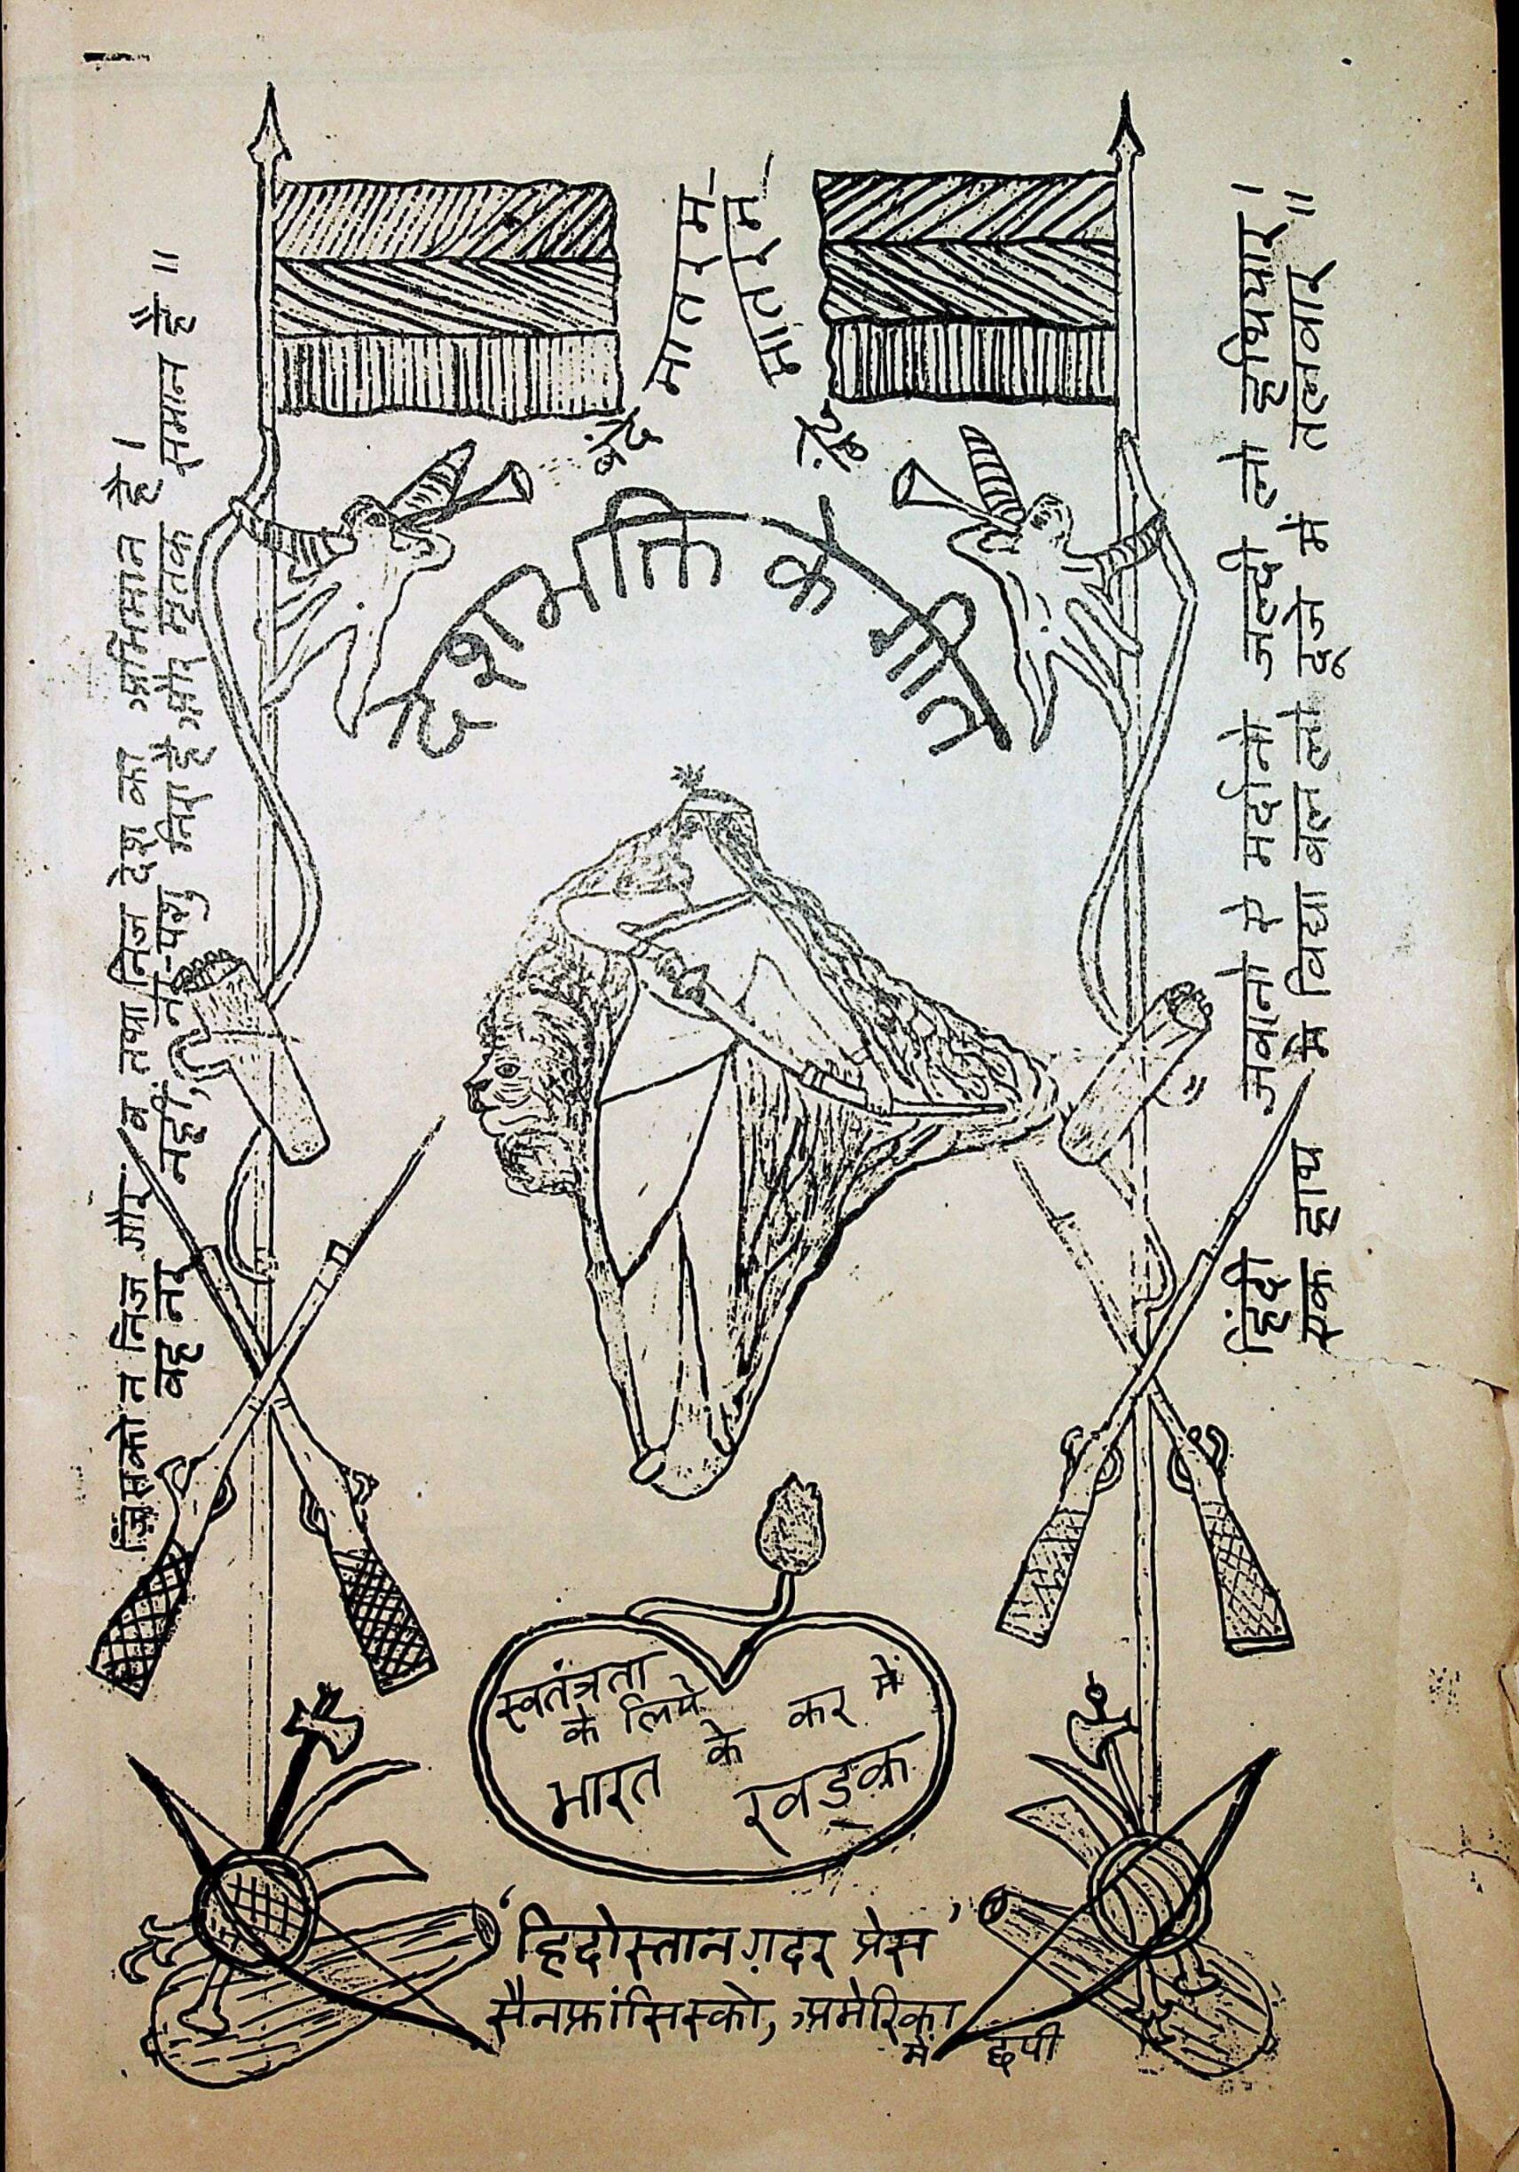 वंदे मातरम्
वंदे मातरम्
देशभक्ति के गीत
जिसको न निज गौरव तथा निज देश का अभिमान है।
वह नर नहीं, नर-पशु निरा है और मृतक समान है॥
हिंदी जवानो ऐ मर्दानो जल्दी लो हथियार।
एक हाथ में विद्या बल लो दूजे में तलवार॥
स्वतंत्रता
के लिये
भारत के कर में
खड्क
'हिंदोस्तान ग़दर प्रेस'
सैनफ्रांसिस्को, अमेरिका
में छपी